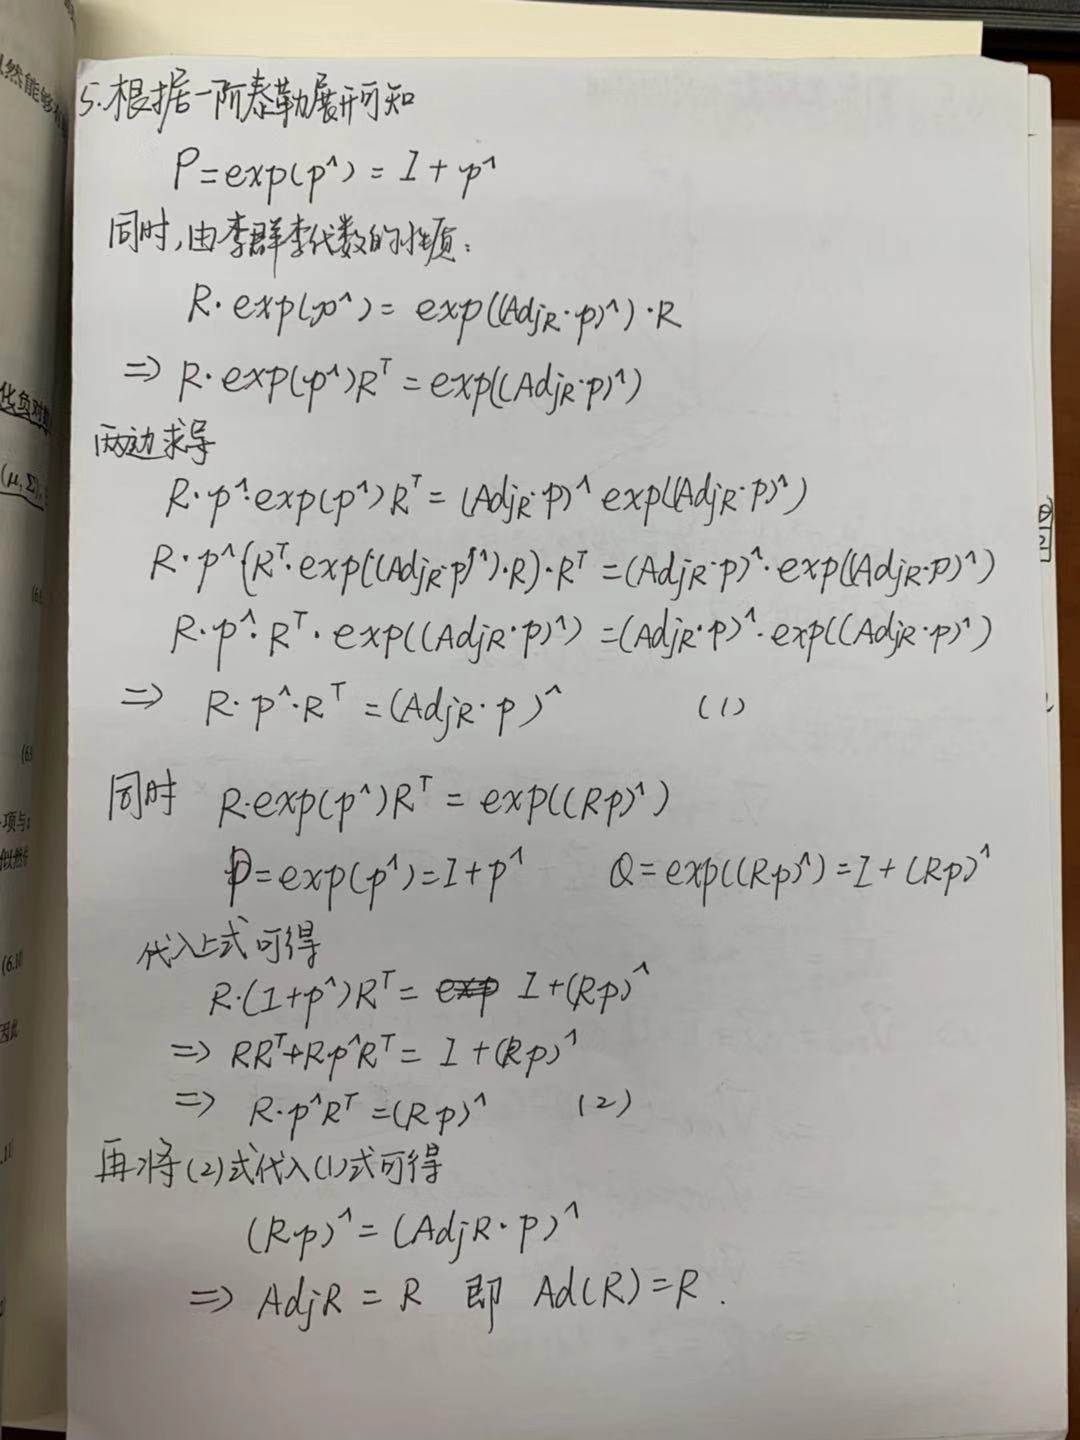 5.根据一阶泰勒展开可知
P=exp(p^)=I+p^
同时,由李群李代数的性质:
R·exp(p^)=exp((AdjR·p)^)·R
=> R·exp(p^)R^T=exp((AdjR·p)^)
两边求导
R·p^·exp(p^)R^T=(AdjR·p)^exp((AdjR·p)^)
R·p^(R^T·exp((AdjR·p)^)·R)·R^T=(AdjR·p)^·exp((AdjR·p)^)
R·p^·R^T·exp((AdjR·p)^)=(AdjR·p)^·exp((AdjR·p)^)
=> R·p^·R^T=(AdjR·p)^ (1)
同时 R·exp(p^)R^T=exp((Rp)^)
P=exp(p^)=I+p^ Q=exp((Rp)^)=I+(Rp)^
代入上式可得
R·(I+p^)R^T= I+(Rp)^
=> RR^T+Rp^R^T=I+(Rp)^
=> R·p^R^T=(Rp)^ (2)
再将(2)式代入(1)式可得
(Rp)^=(AdjR·p)^
=> AdjR=R 即 Ad(R)=R.
然能够
化负对
(μ,Σ)
(6.
(6.9
项与
似然
(6.10
因此
.11